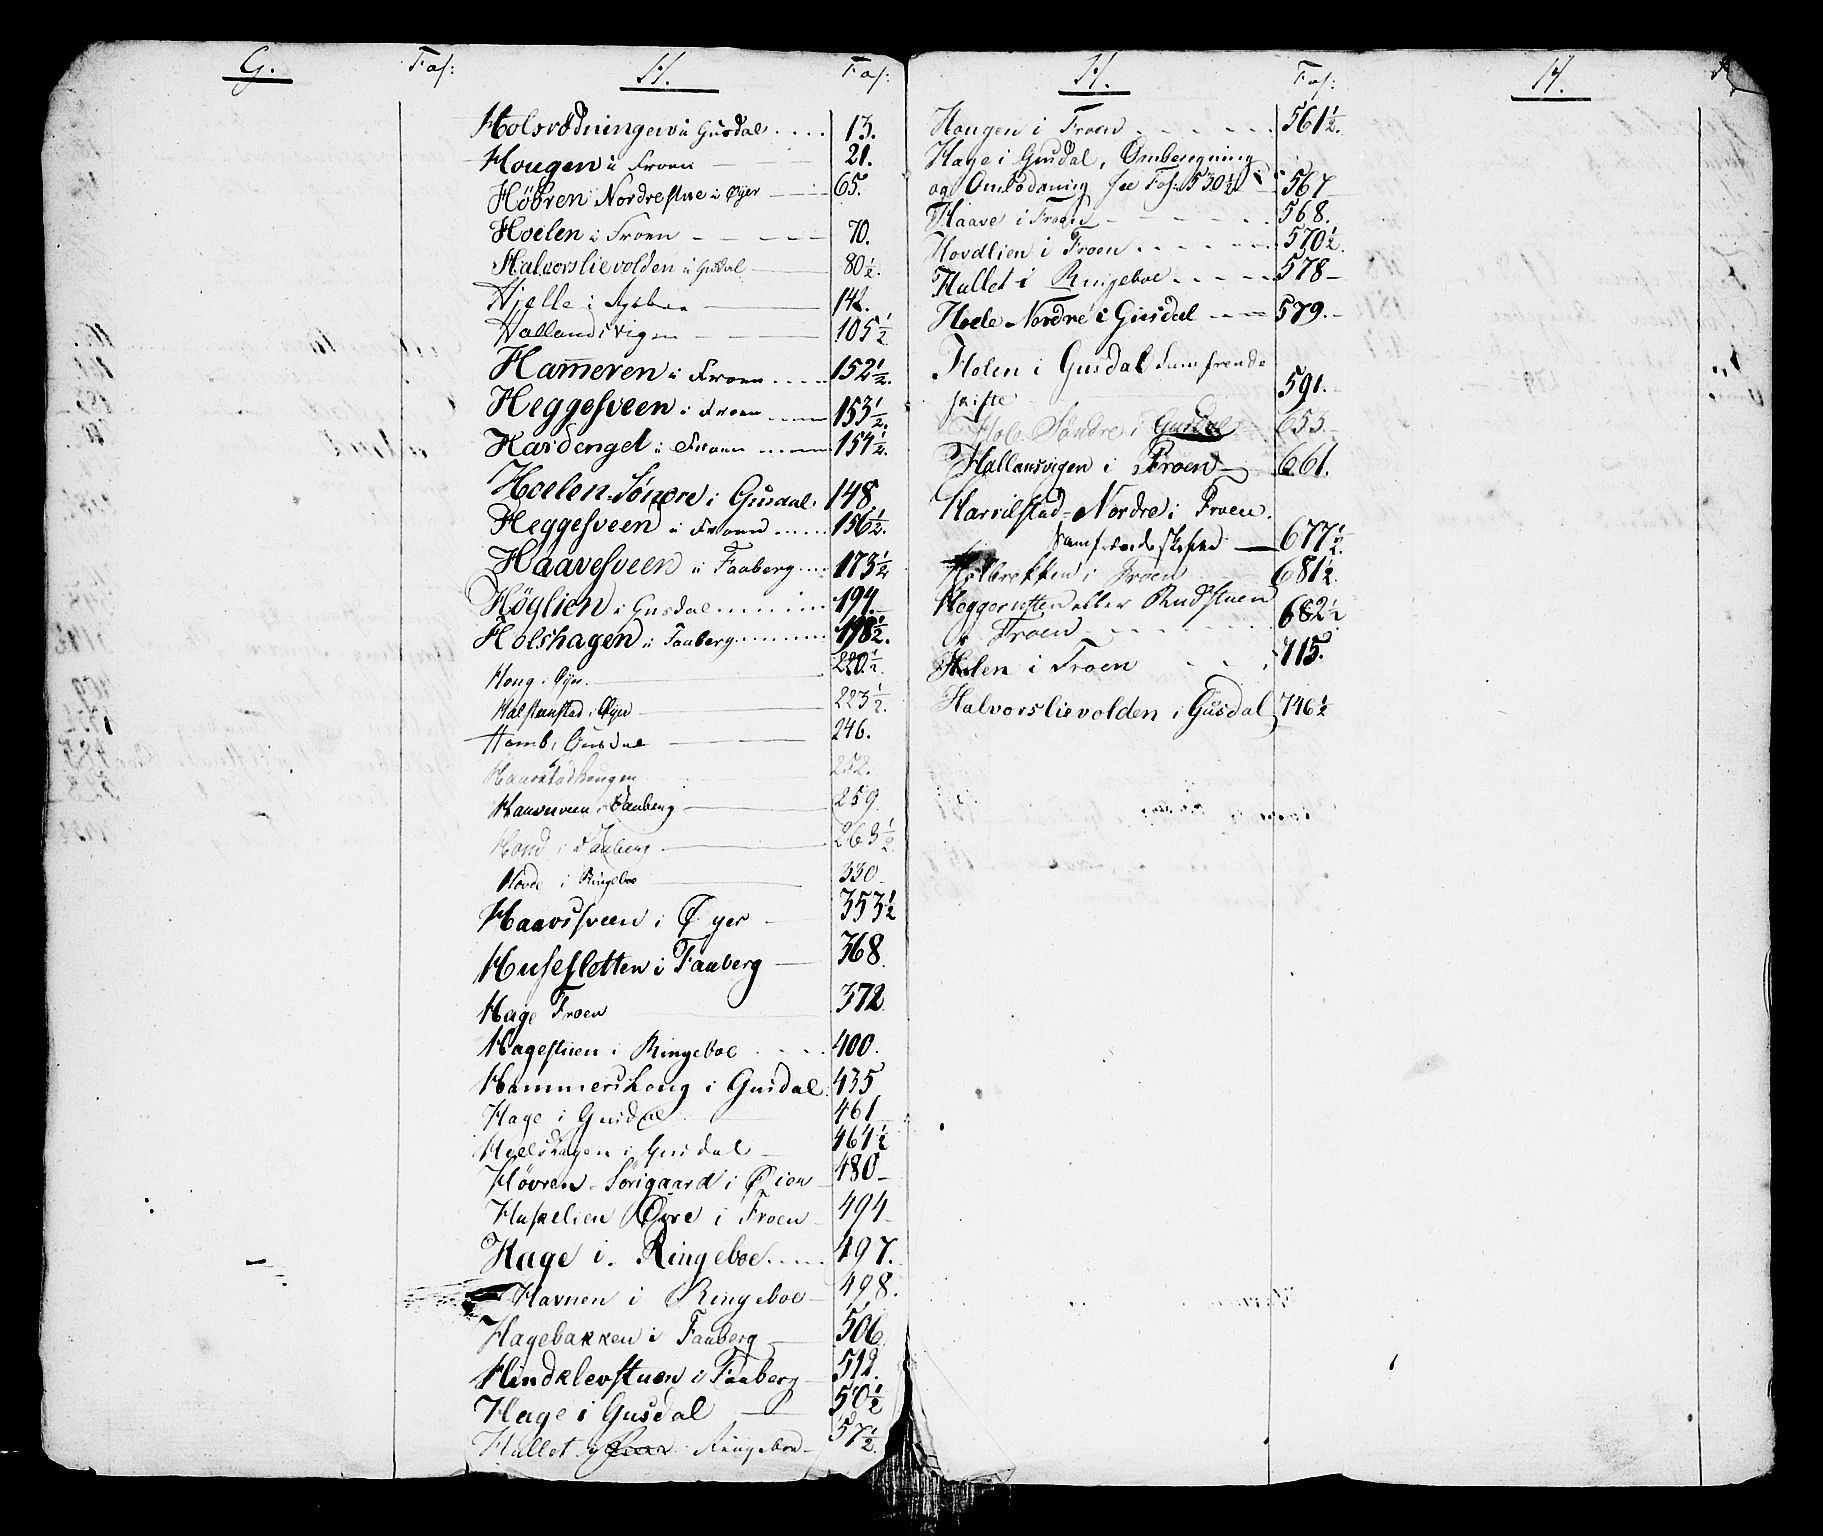 G. Fol:
H. Fol:
Holsrødningen i Gusdal 13.
Hougen i Froen 21.
Høvren Nordrestue i Øyer 65.
Hoelen i Froen 70.
Halvorslievolden i Gusdal 80½.
Hjelle i 142.
Hallandsvigen 105½
Hameren i Froen 152½.
Heggesveen i Froen 153½.
Hardenget i Froen 154½.
Hoelen Sønere i Gusdal 148
Heggesveen i Froen 156½.
Haavesveen i Faaberg 173½
Høglien i Gusdal 194.
Holshagen i Faaberg 198½.
Houg i Øyer 220½.
Halsteenstad i Øyer 223½.
Homb i Gusdal 246.
Haarstadhougen 252.
Haavesveen i Faaberg 259
Hond i Faaberg 263½
Hovde i Ringeboe 330
Haavesveen i Øyer 353½
Husesletten i Faaberg 368
Hage Froen 372
Hagestuen i Ringeboe 400.
Hammershoug i Gusdal 435
Hage i Gusdal 461
Heelshagen i Gusdal 464½
Høvren Sørigaard i Øien 480
Huskelien Øvre i Froen 494
Hage i Ringeboe 497.
Havnen i Ringeboe 498.
Hagebakken i Faaberg 506
Hindklevstuen i Faaberg 512
Hage i Gusdal 50½
Hullet i Ringeboe 57½.
H. Fol:
Hougen i Froen 561½.
Hage i Gusdal, Omberegning
og Omlodning see Fol: 530½ 567
Haave i Froen 568.
Hovdlien i Froen 570½.
Hullet i Ringeboe 578
Hode Nordre i Gusdal 579.
Holen i Gusdal Samfrende
skifte 591.
Hole Søndre i Gusdal 653
Hallansvigen i Froen 661.
Harildstad Nordre i Froen.
Samfrendeskifte 677½.
Holbrekken i Froen 681½.
Heggerusten eller Rudstuen
i Froen 682½
Holen i Froen 715.
Halvorslievolden i Gusdal 746½
H.